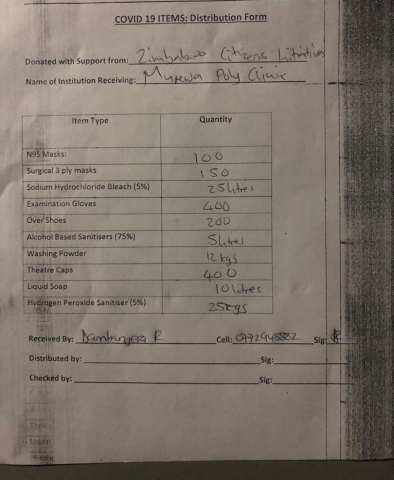 COVID 19 ITEMS: Distribution Form
Donated with Support from: Zimbabwe Citizens Initiative
Name of Institution Receiving: Murewa Poly Clinic
Item Type Quantity
N95 Masks: 100
Surgical 3 ply masks 150
Sodium Hydrochloride Bleach (5%) 25 litres
Examination Gloves 400
Over Shoes 200
Alcohol Based Sanitisers (75%) 5 litres
Washing Powder 12 kgs
Theatre Caps 400
Liquid Soap 10 litres
Hydrogen Peroxide Sanitiser (5%) 25kgs
Received By: R Cell: Sig:
Distributed by: Sig:
Checked by: Sig: